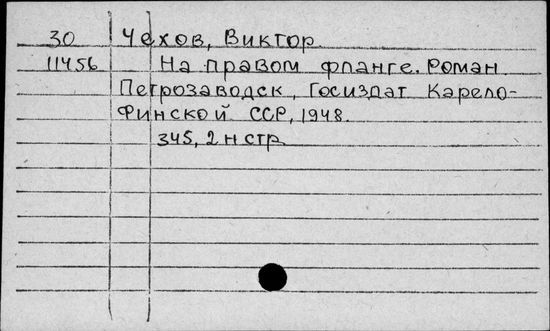 30 Чехов, Виктор.
11456 На правом фланге. Роман.
Петрозаводск, Госиздат Карело-
Финской ССР, 1948.
345, 2 н стр.